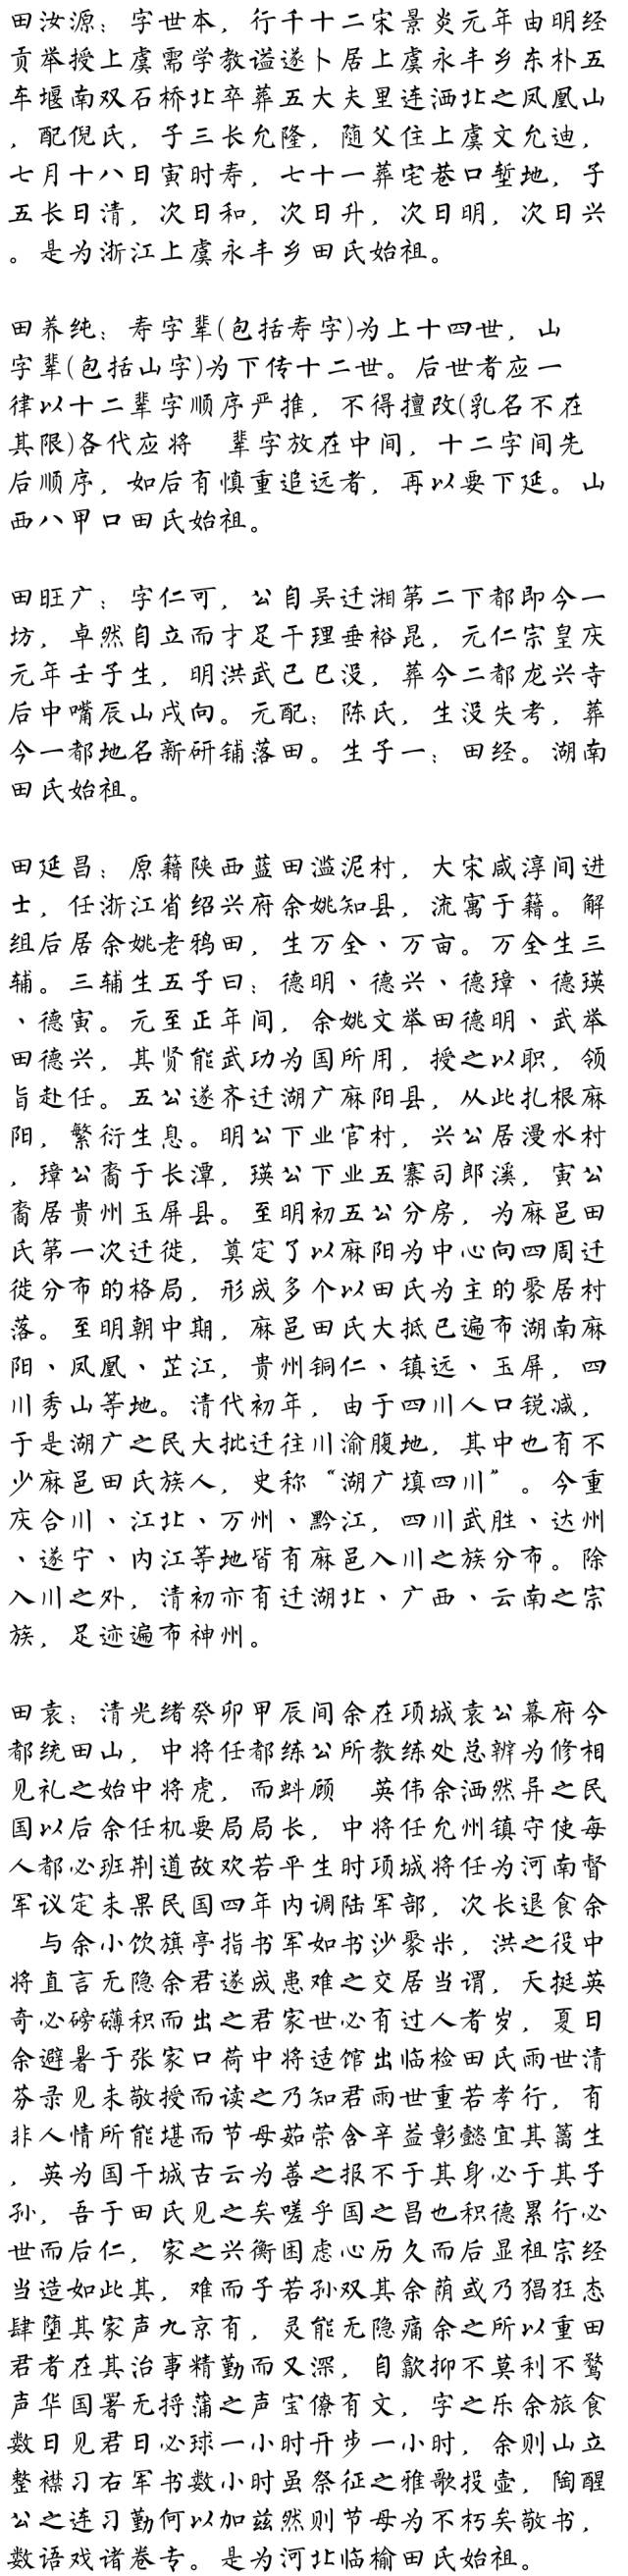 田汝源：字世本，行千十二宋景炎元年由明经
贡举授上虞需学教谥遂卜居上虞永丰乡东朴五
车堰南双石桥北卒葬五大夫里连洒北之凤凰山
，配倪氏，子三长允隆，随父住上虞文允迪，
七月十八日寅时寿，七十一葬宅巷口堑地，子
五长日清，次日和，次日升，次日明，次日兴
。是为浙江上虞永丰乡田氏始祖。
田养纯：寿字辈(包括寿字)为上十四世，山
字辈(包括山字)为下传十二世。后世者应一
律以十二辈字顺序严推，不得擅改(乳名不在
其限)各代应将　辈字放在中间，十二字间先
后顺序，如后有慎重追远者，再以要下延。山
西八甲口田氏始祖。
田旺广：字仁可，公自吴迁湘第二下都即今一
坊，卓然自立而才足干理垂裕昆，元仁宗皇庆
元年壬子生，明洪武己巳没，葬今二都龙兴寺
后中嘴辰山戌向。元配：陈氏，生没失考，葬
今一都地名新研铺落田。生子一：田经。湖南
田氏始祖。
田延昌：原籍陕西蓝田滥泥村，大宋咸淳间进
士，任浙江省绍兴府余姚知县，流寓于籍。解
组后居余姚老鸦田，生万全、万亩。万全生三
辅。三辅生五子曰：德明、德兴、德璋、德瑛
、德寅。元至正年间，余姚文举田德明、武举
田德兴，其贤能武功为国所用，授之以职，领
旨赴任。五公遂齐迁湖广麻阳县，从此扎根麻
阳，繁衍生息。明公下业官村，兴公居漫水村
，璋公裔于长潭，瑛公下业五寨司郎溪，寅公
裔居贵州玉屏县。至明初五公分房，为麻邑田
氏第一次迁徙，奠定了以麻阳为中心向四周迁
徙分布的格局，形成多个以田氏为主的聚居村
落。至明朝中期，麻邑田氏大抵已遍布湖南麻
阳、凤凰、芷江，贵州铜仁、镇远、玉屏，四
川秀山等地。清代初年，由于四川人口锐减，
于是湖广之民大批迁往川渝腹地，其中也有不
少麻邑田氏族人，史称“湖广填四川”。今重
庆合川、江北、万州、黔江，四川武胜、达州
、遂宁、内江等地皆有麻邑入川之族分布。除
入川之外，清初亦有迁湖北、广西、云南之宗
族，足迹遍布神州。
田袁：清光绪癸卯甲辰间余在项城袁公幕府今
都统田山，中将任都练公所教练处总辨为修相
见礼之始中将虎，而蚪顾　英伟余洒然异之民
国以后余任机要局局长，中将任允州镇守使每
人都必班荆道故欢若平生时项城将任为河南督
军议定未果民国四年内调陆军部，次长退食余
　与余小饮旗亭指书军如书沙聚米，洪之役中
将直言无隐余君遂成患难之交居当谓，天挺英
奇必磅礴积而出之君家世必有过人者岁，夏日
余避暑于张家口荷中将适馆出临检田氏雨世清
芬录见未敬授而读之乃知君雨世重若孝行，有
非人情所能堪而节母茹荣含辛益彰懿宜其篱生
，英为国干城古云为善之报不于其身必于其子
孙，吾于田氏见之矣嗟乎国之昌也积德累行必
世而后仁，家之兴衡困虑心历久而后显祖宗经
当造如此其，难而子若孙双其余荫或乃猖狂态
肆堕其家声九京有，灵能无隐痛余之所以重田
君者在其治事精勤而又深，自歙抑不莫利不骛
声华国署无捋蒲之声宝僚有文，字之乐余旅食
数日见君日必球一小时开步一小时，余则山立
整襟习右军书数小时虽祭征之雅歌投壶，陶醒
公之连习勤何以加兹然则节母为不朽矣敬书，
数语戏诸卷专。是为河北临榆田氏始祖。